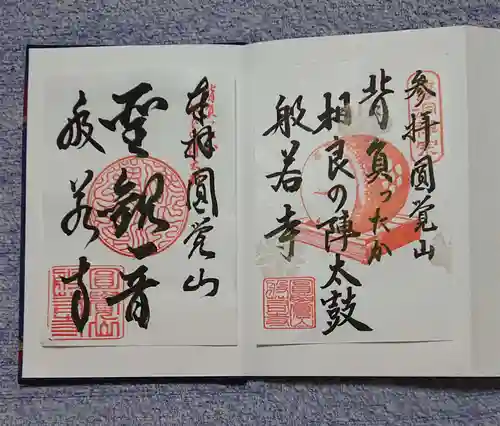 参拝圓覚山
背負ったか
相良の陣太鼓
般若寺
奉拝圓覚山
聖観音
般若寺